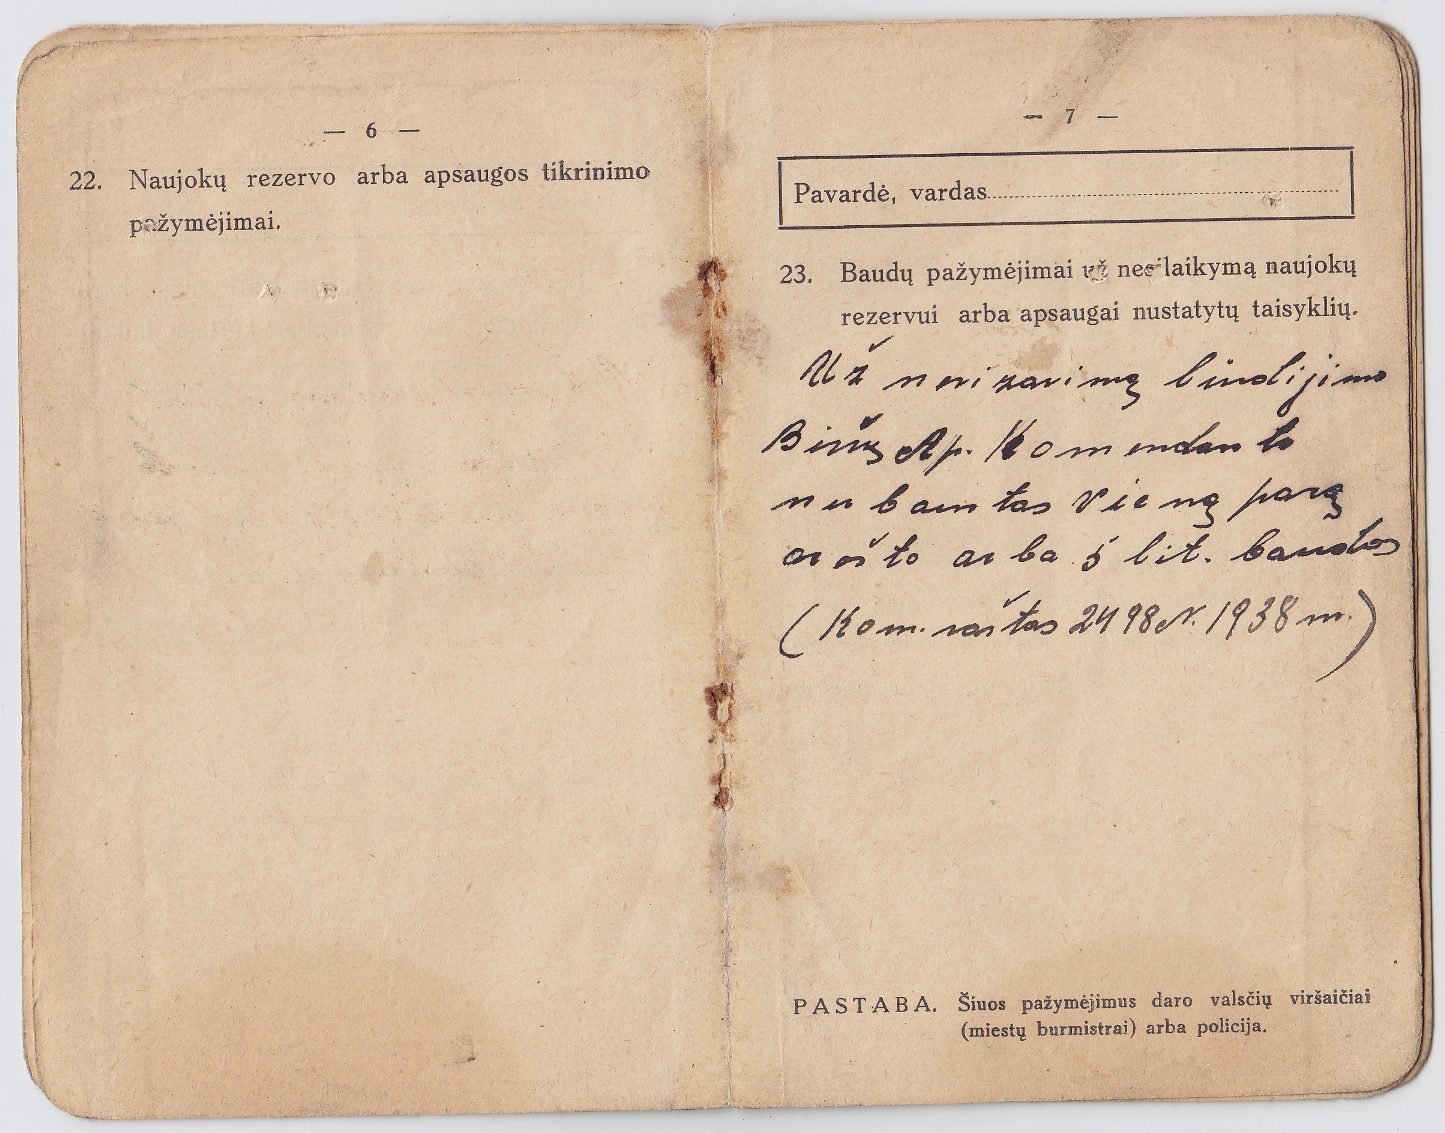 — 6 —
22. Naujokų rezervo arba apsaugos tikrinimo
pažymėjimai.
— 7 —
Pavardė, vardas
23. Baudų pažymėjimai už nesilaikymą naujokų
rezervui arba apsaugai nustatytų taisyklių.
Už nevizavimą liudijimo
Biržų Ap. Komendanto
nubaustas vieną parą
arešto arba 5 lit. baudos
(Kom. raštas 2498 N. 1938 m.)
PASTABA. Šiuos pažymėjimus daro valsčių viršaičiai
(miestų burmistrai) arba policija.